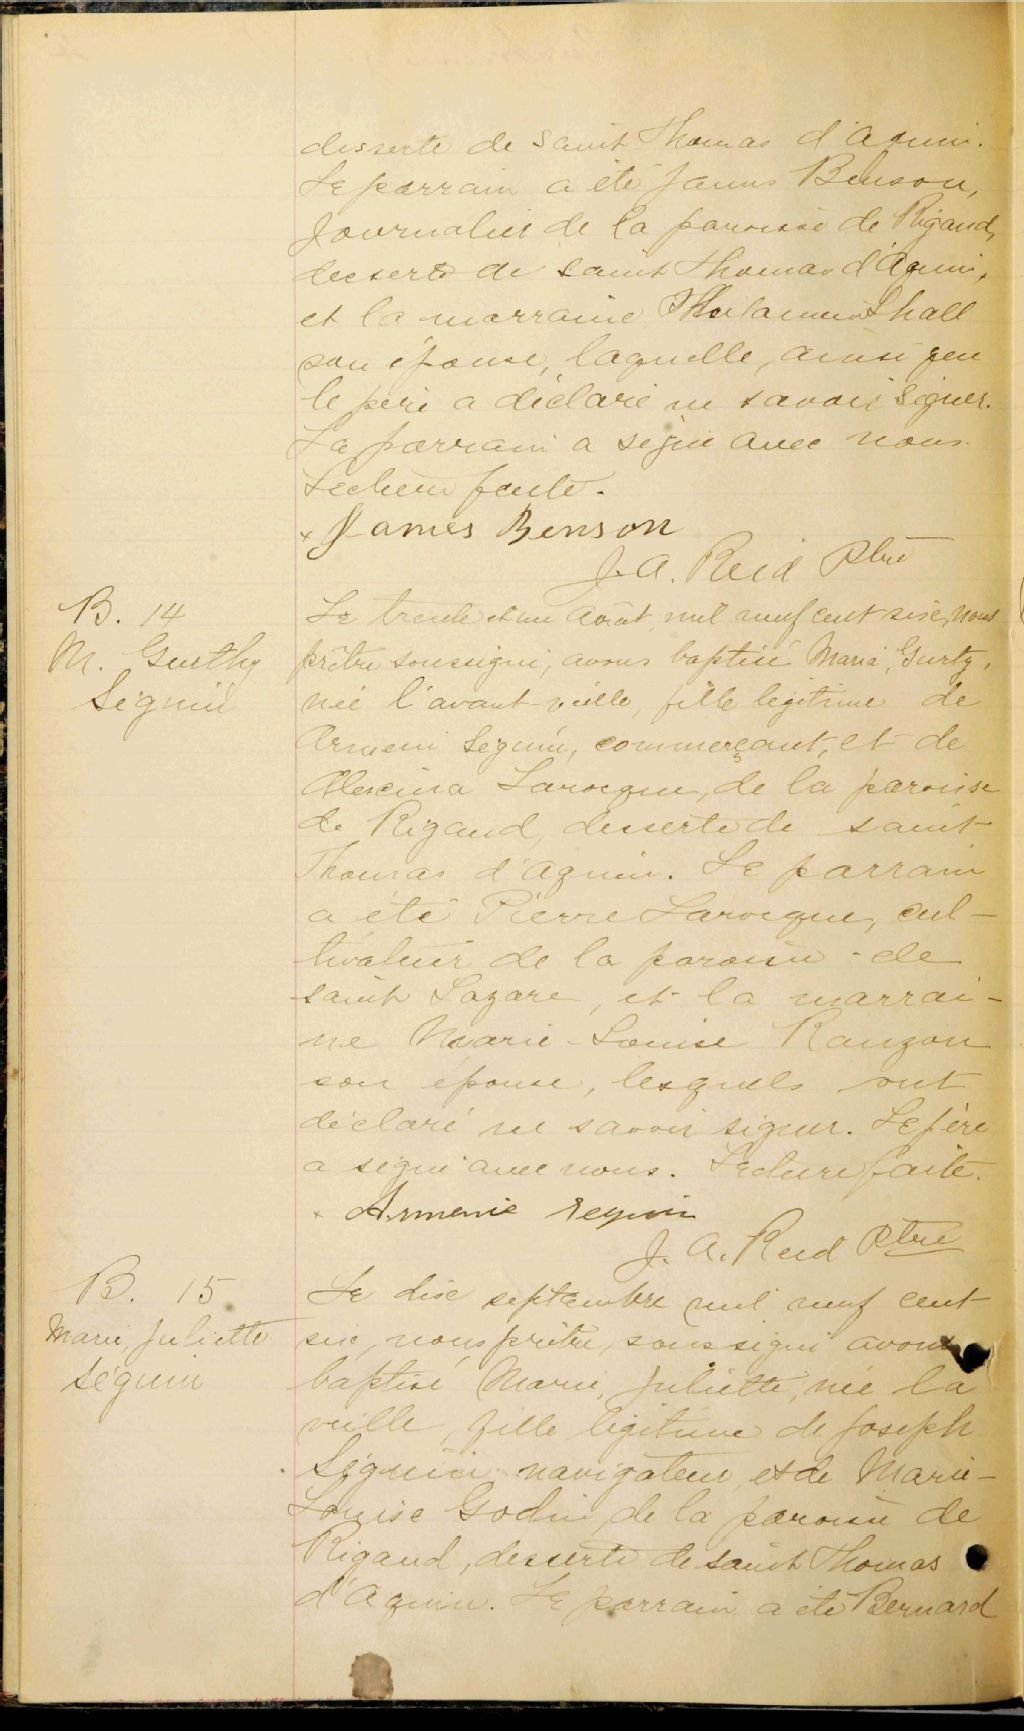 desserte de Saint Thomas d'Aquin.
Le parrain a été James Benson,
Journalier de la paroisse de Rigaud,
desserte de Saint Thomas d'Aquin,
et la marraine
son épouse, laquelle, ainsi que
le père a déclaré ne savoir signer.
Le parrain a signé avec nous.
Lecture faite.
x James Benson
J. A. Reid Ptre
B. 14
M. Gurthy
Séguin
Le trente et un Août, mil neuf cent six, nous
prêtre soussigné, avons baptisé Maria, Gurty,
née l'avant-veille, fille légitime de
Armeni Seguin, commerçant, et de
Alexina Larocque, de la paroisse
de Rigaud, desserte de saint
Thomas d'Aquin. Le parrain
a été Pierre Larocque, cul-
tivateur de la paroisse de
saint Lazare, et la marrai-
ne Marie-Louise Rauzon
son épouse, lesquels ont
déclaré ne savoir signer. Le père
a signé avec nous. Lecture faite.
x Armenie Seguin
J. A. Reid Ptre
B. 15
Marie, Juliette
Séguin
Le dix septembre mil neuf cent
six, nous prêtre, soussigné avons
baptisé Marie, Juliette, née la
veille, fille légitime de Joseph
Séguin navigateur et de Marie-
Louise Godin, de la paroisse de
Rigaud, desserte de saint Thomas
d'Aquin. Le parrain a été Bernard